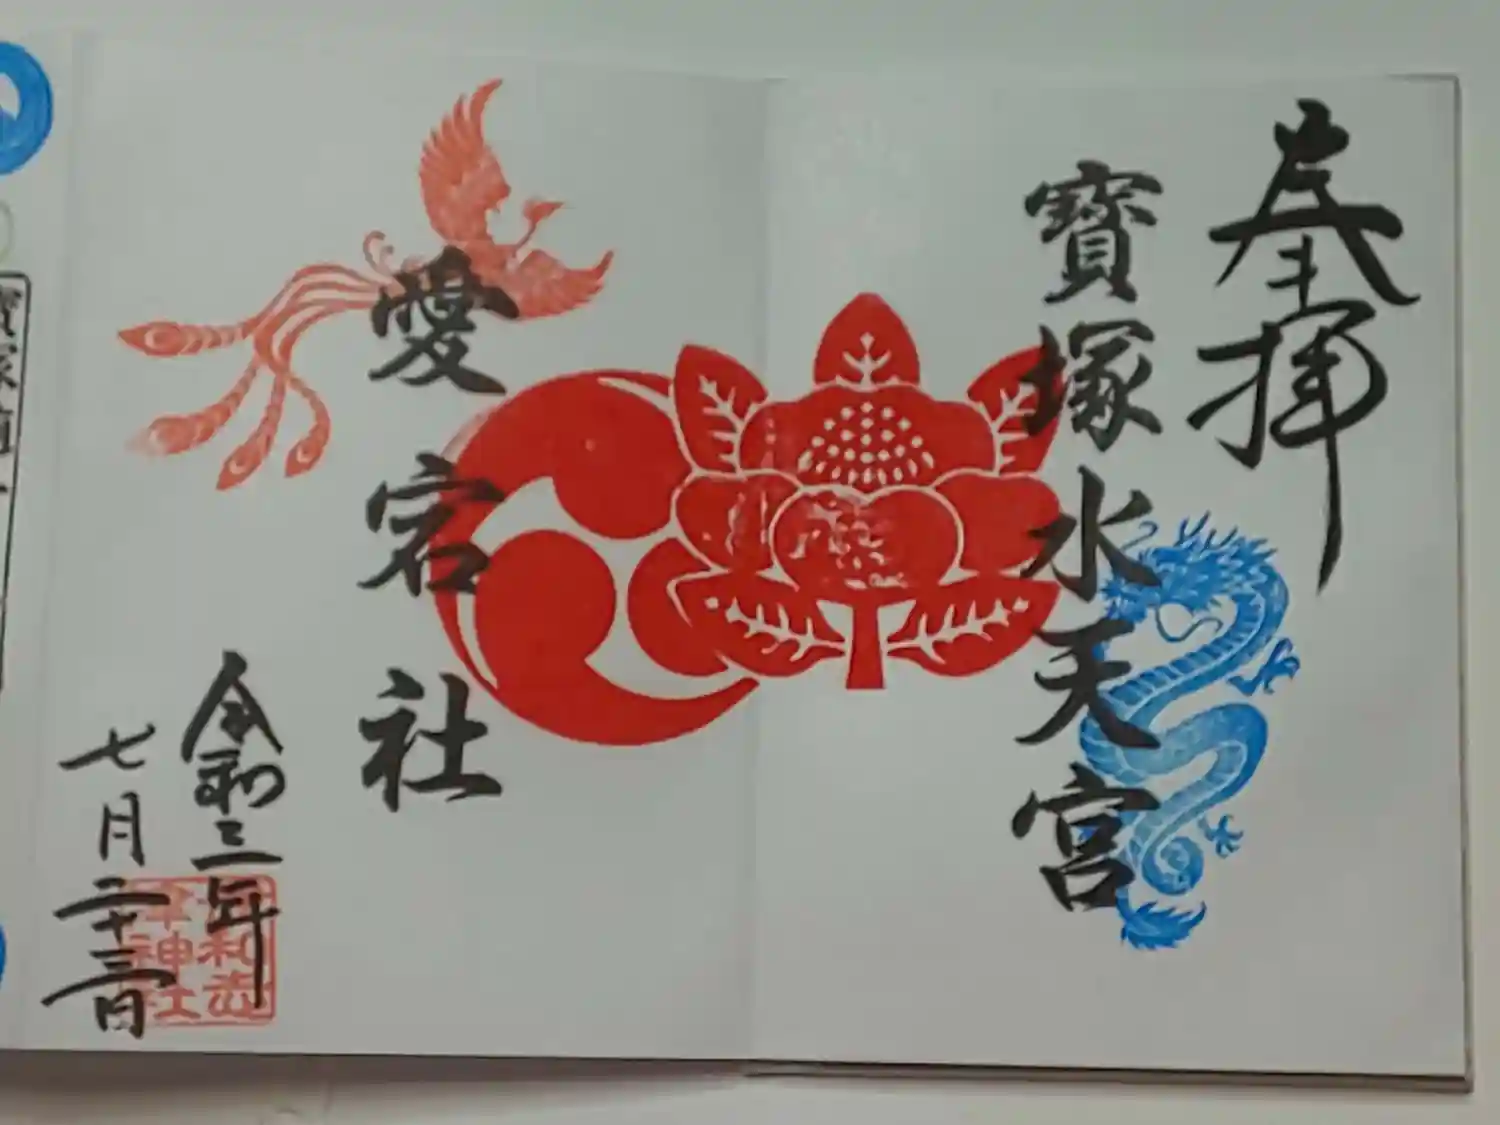 奉拝
寳塚水天宮
愛宕社
令和三年
七月二十三日
神社